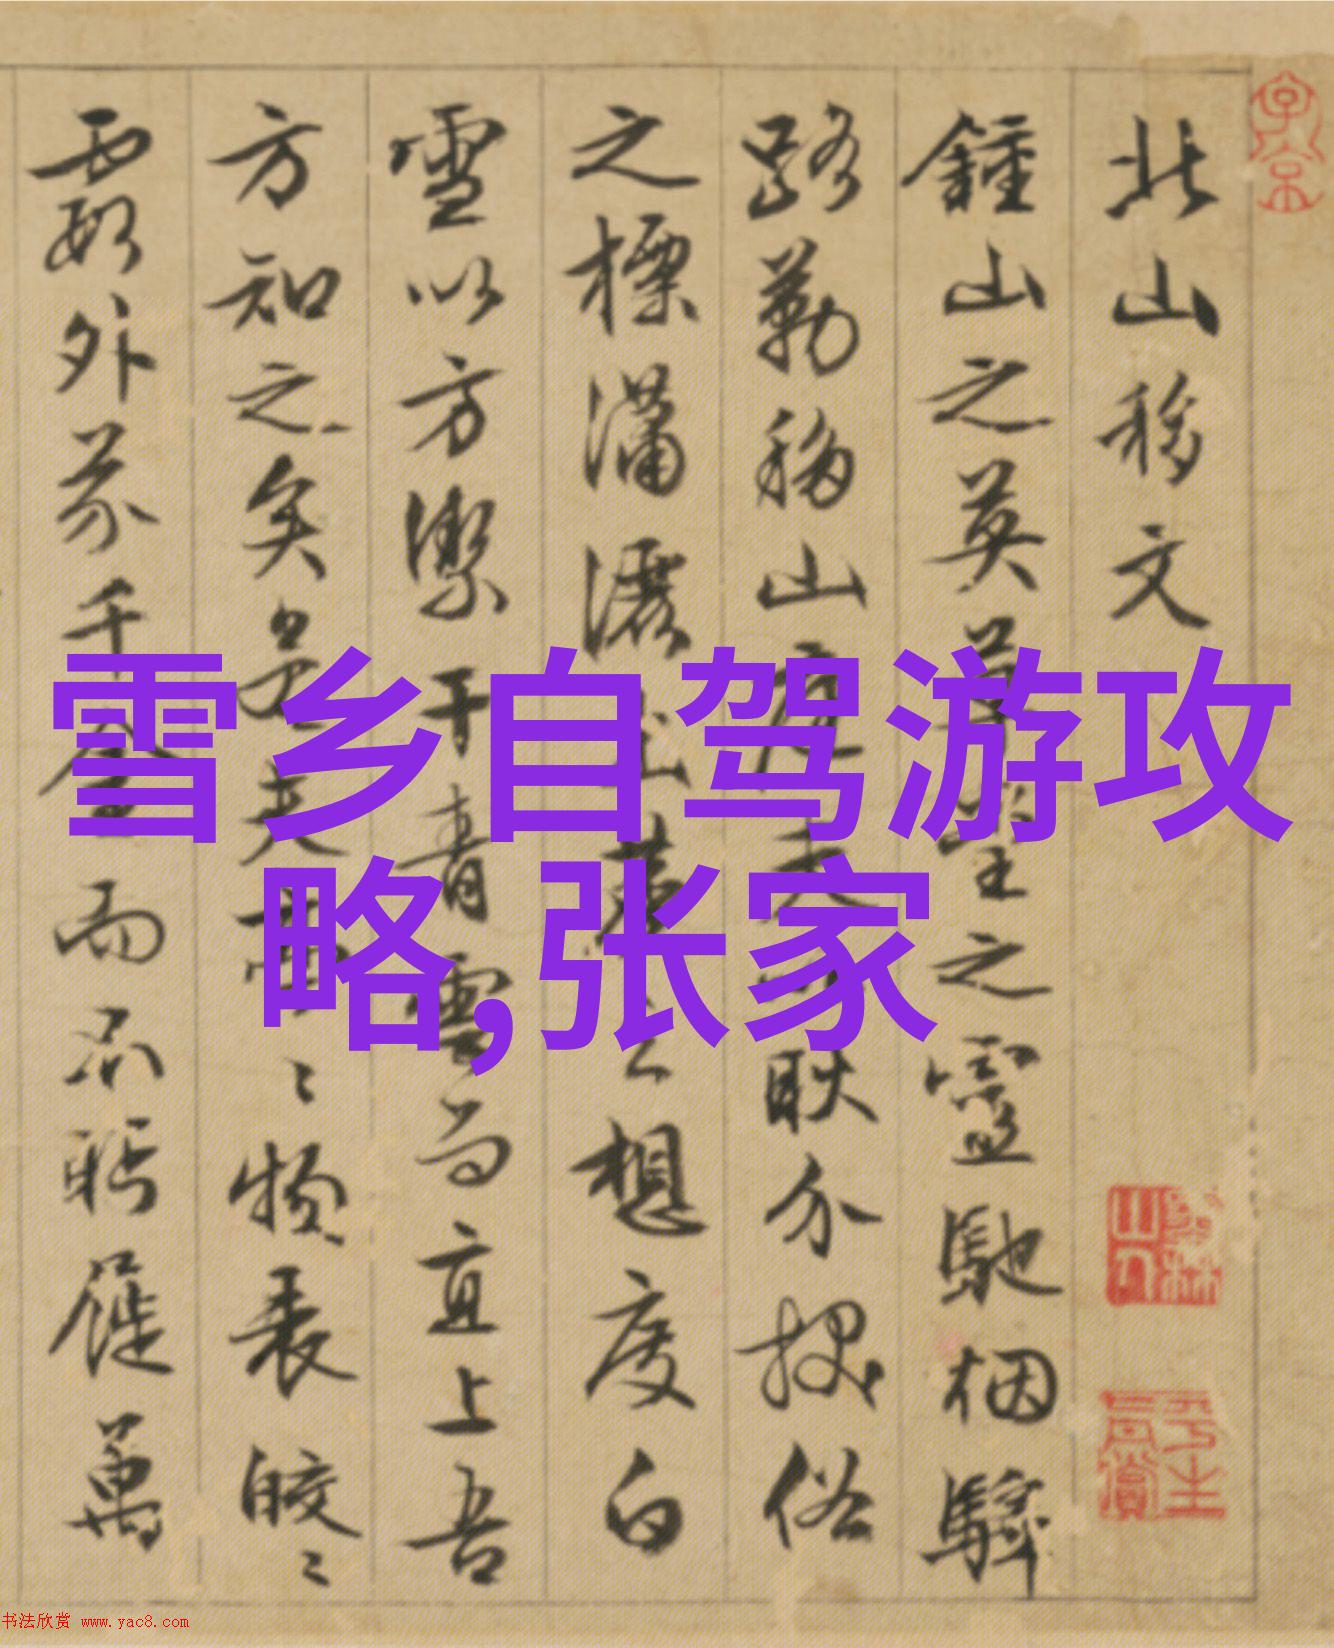 雪乡自驾游攻
略,张家
北山移文
鍾山之英草堂之靈馳烟驛
路勒移山庭夫以耿介拔俗
之標瀟灑出塵之想度白
雪以方潔干青雲而直上吾
方知之矣若夫亭〻物表皎〻
霞外芥千金而不眄屣萬
墨林山人
平生真賞
书法欣赏 www.yac8.com